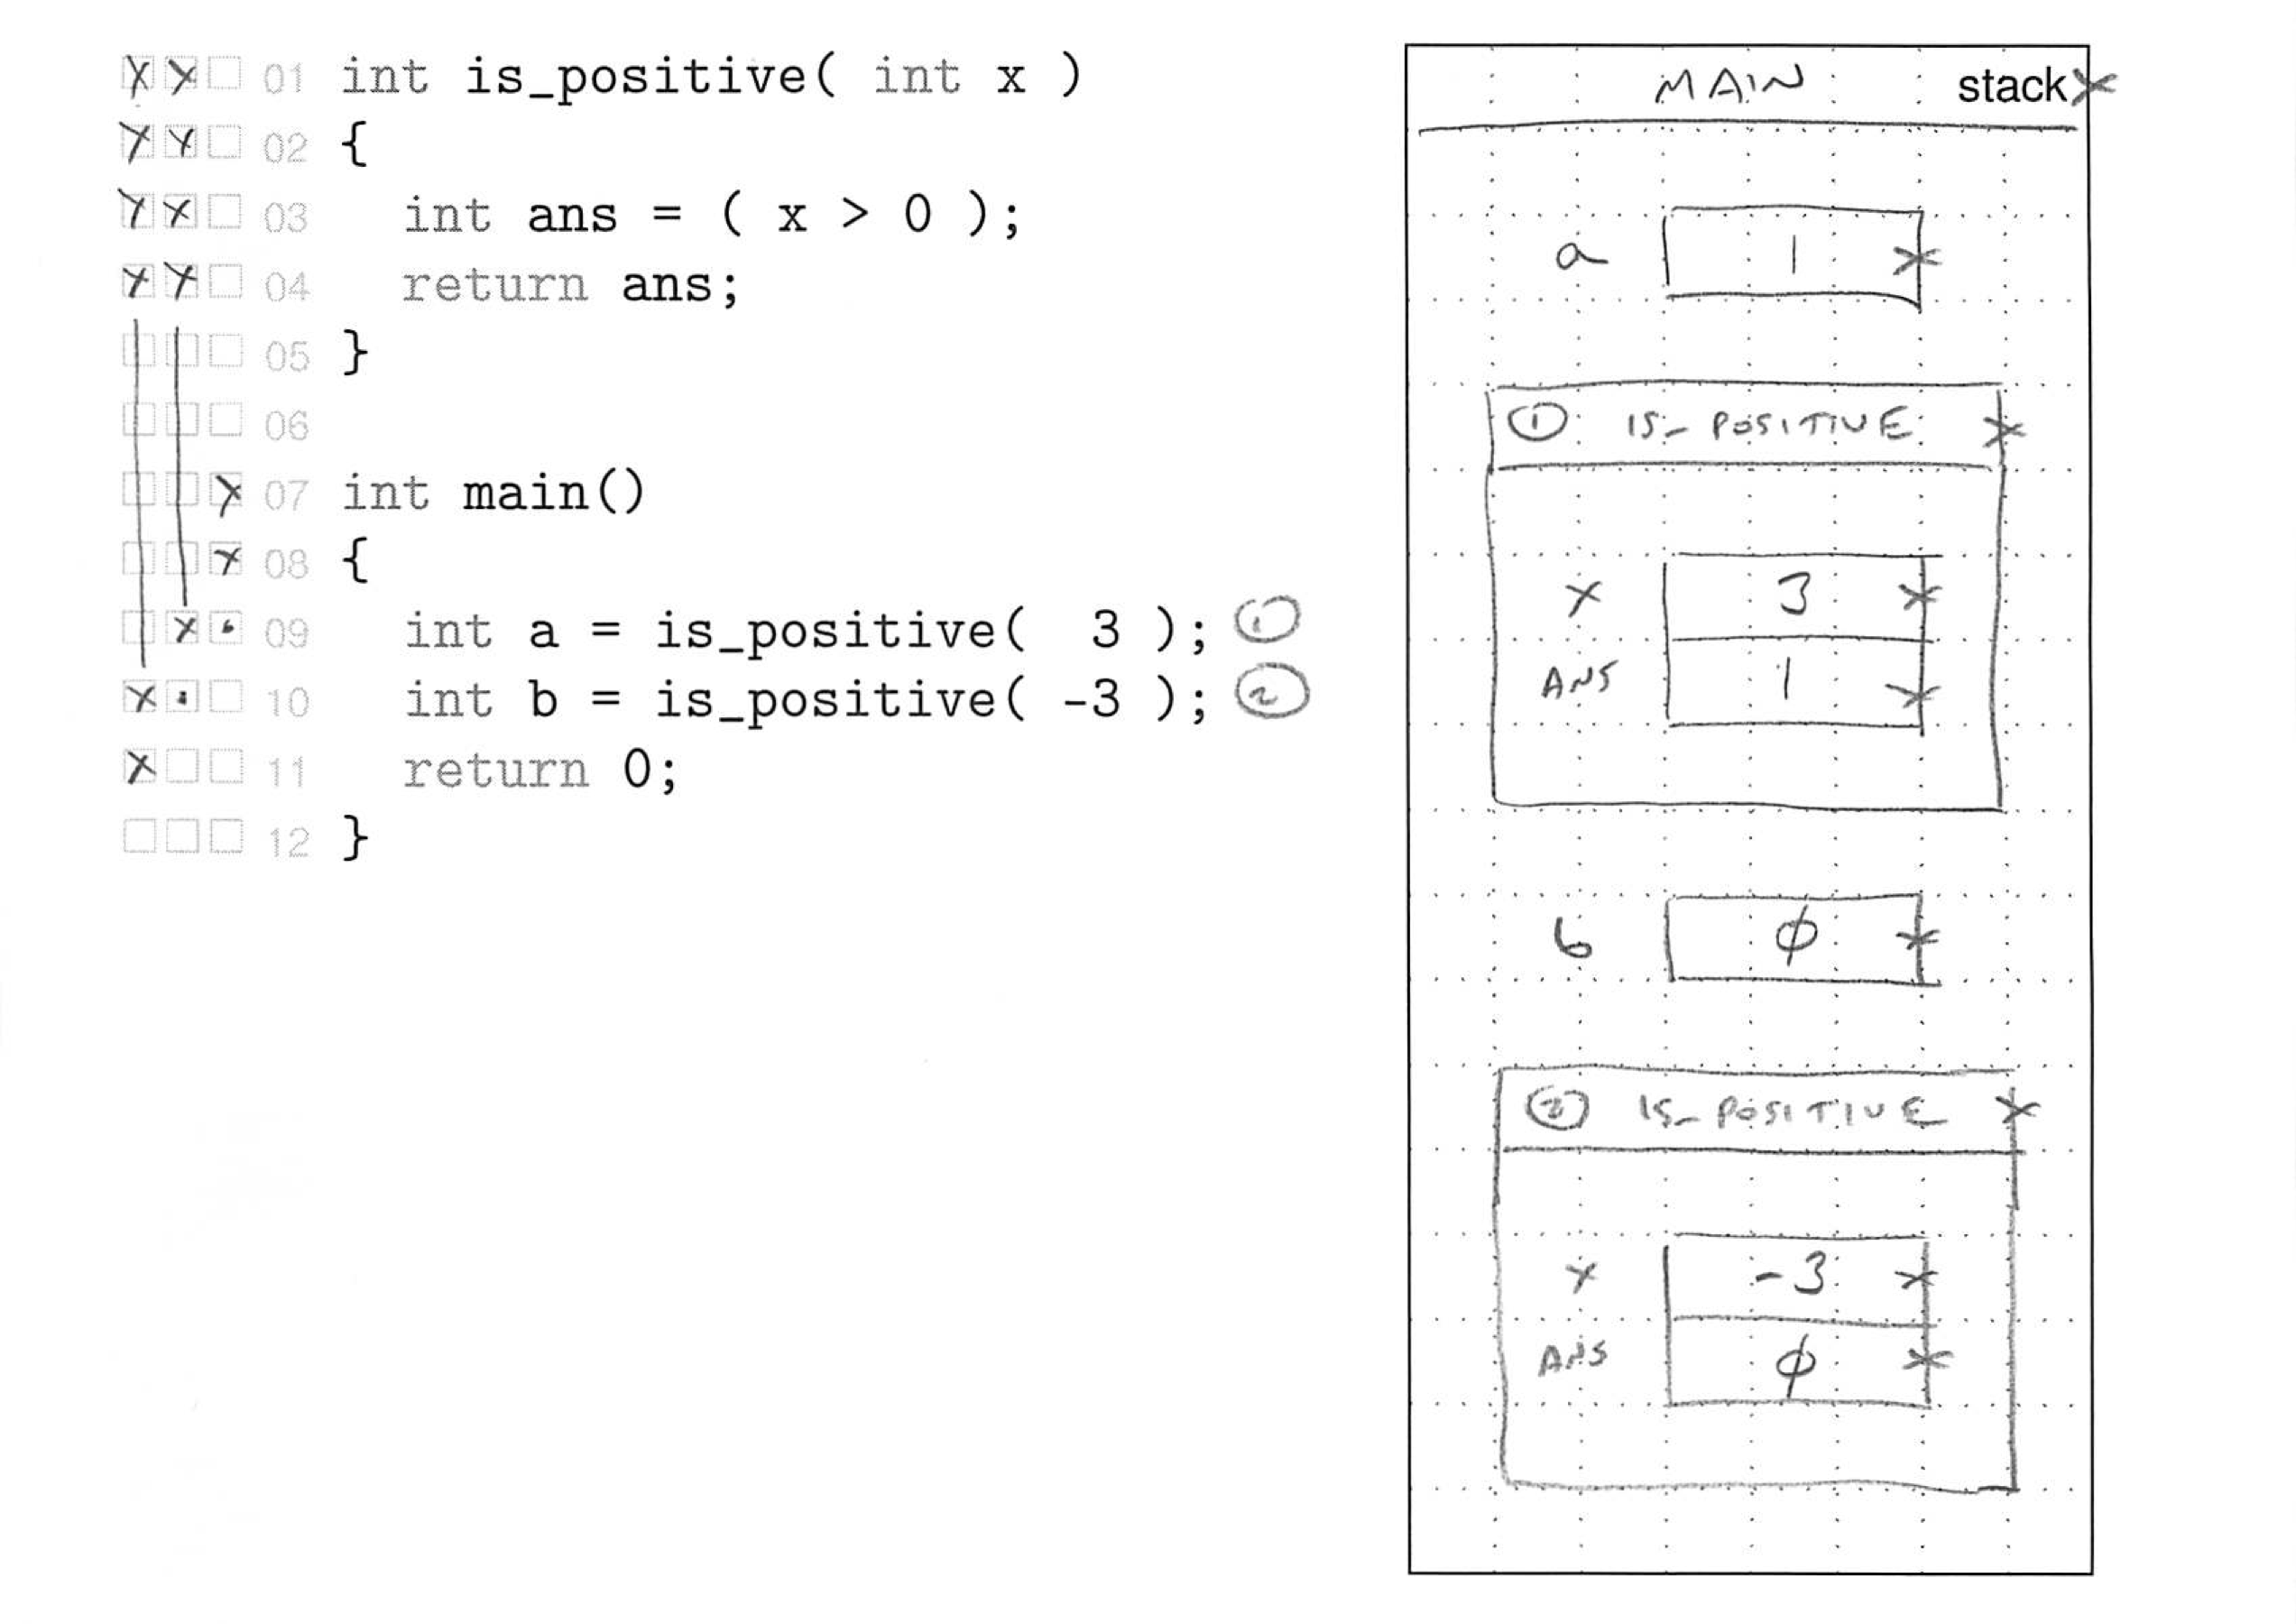 01 int is_positive( int x )
02 {
03 int ans = ( x > 0 );
04 return ans;
05 }
06
07 int main()
08 {
09 int a = is_positive( 3 ); ①
10 int b = is_positive( -3 ); ②
11 return 0;
12 }
MAIN stack
a 1
① IS_POSITIVE
x 3
ANS 1
b ϕ
② IS_POSITIVE
x -3
ANS ϕ